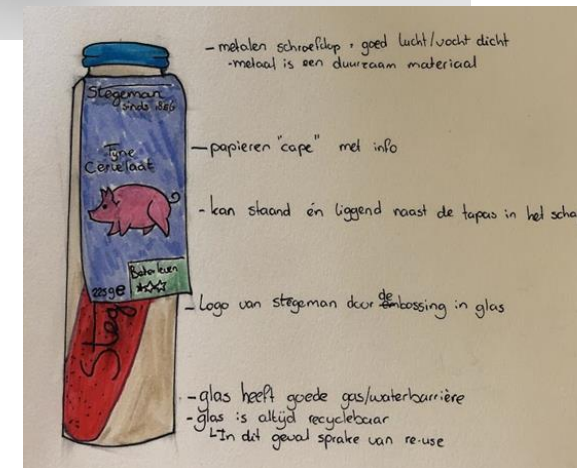 Stegeman
sinds 1866
Fijne
Cervelaat
Beter leven
225g e
Steg
- metalen schroefdop, goed lucht/vocht dicht
- metaal is een duurzaam materiaal
- papieren "cape" met info
- kan staand én liggend naast de tapas in het scha
- Logo van stegeman door debossing in glas
- glas heeft goede gas/waterbarrière
- glas is altijd recyclebaar
In dit geval sprake van re-use